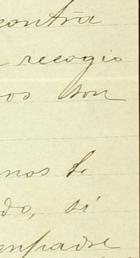 contra
recogio
os son
nos te
do, si
mpadre